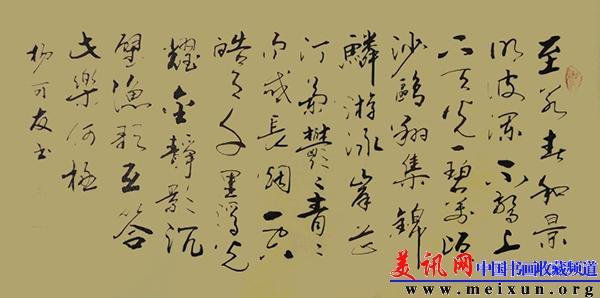 至若春和景
明波瀾不驚上
下天光一碧萬頃
沙鷗翔集錦
鱗游泳岸芷
汀蘭鬱々青々
而或長烟一空
皓月千里浮光
耀金靜影沉
璧漁歌互答
此樂何極
楊可友书
美讯网中国书画收藏频道
www.meixun.org